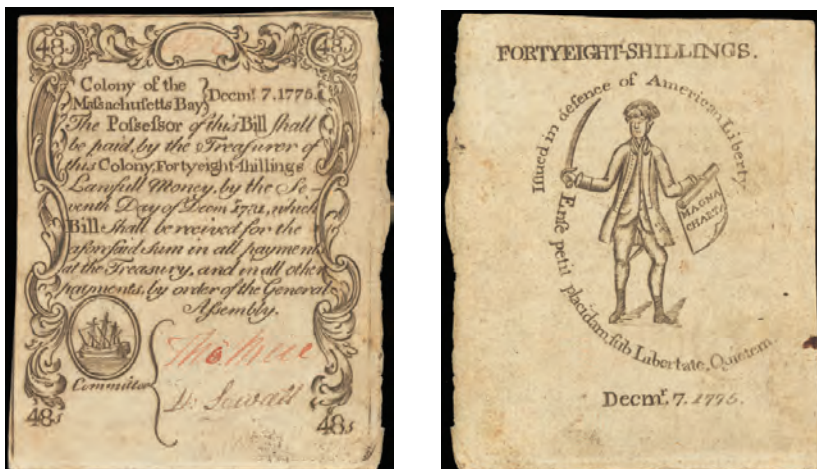 48s 48s
Colony of the
Maſsachuſetts Bay Decmr. 7.1775.
The Poſseſsor of this Bill ſhall
be paid, by the Treaſuror of
this Colony, Fortyeight-ſhillings
Lawfull Money, by the Se-
venth Day of Decmr. 1781, which
Bill ſhall be received for the
aforeſaid ſum in all payments
at the Treaſury, and in all other
payments, by order of the General
Aſsembly.
Committee
D: Sewall
48s 48s
FORTYEIGHT-SHILLINGS.
Iſsued in defence of American Liberty
MAGNA
CHARTA
Enſe petit placidam, ſub Libertate, Quietem
Decmr. 7. 1775.